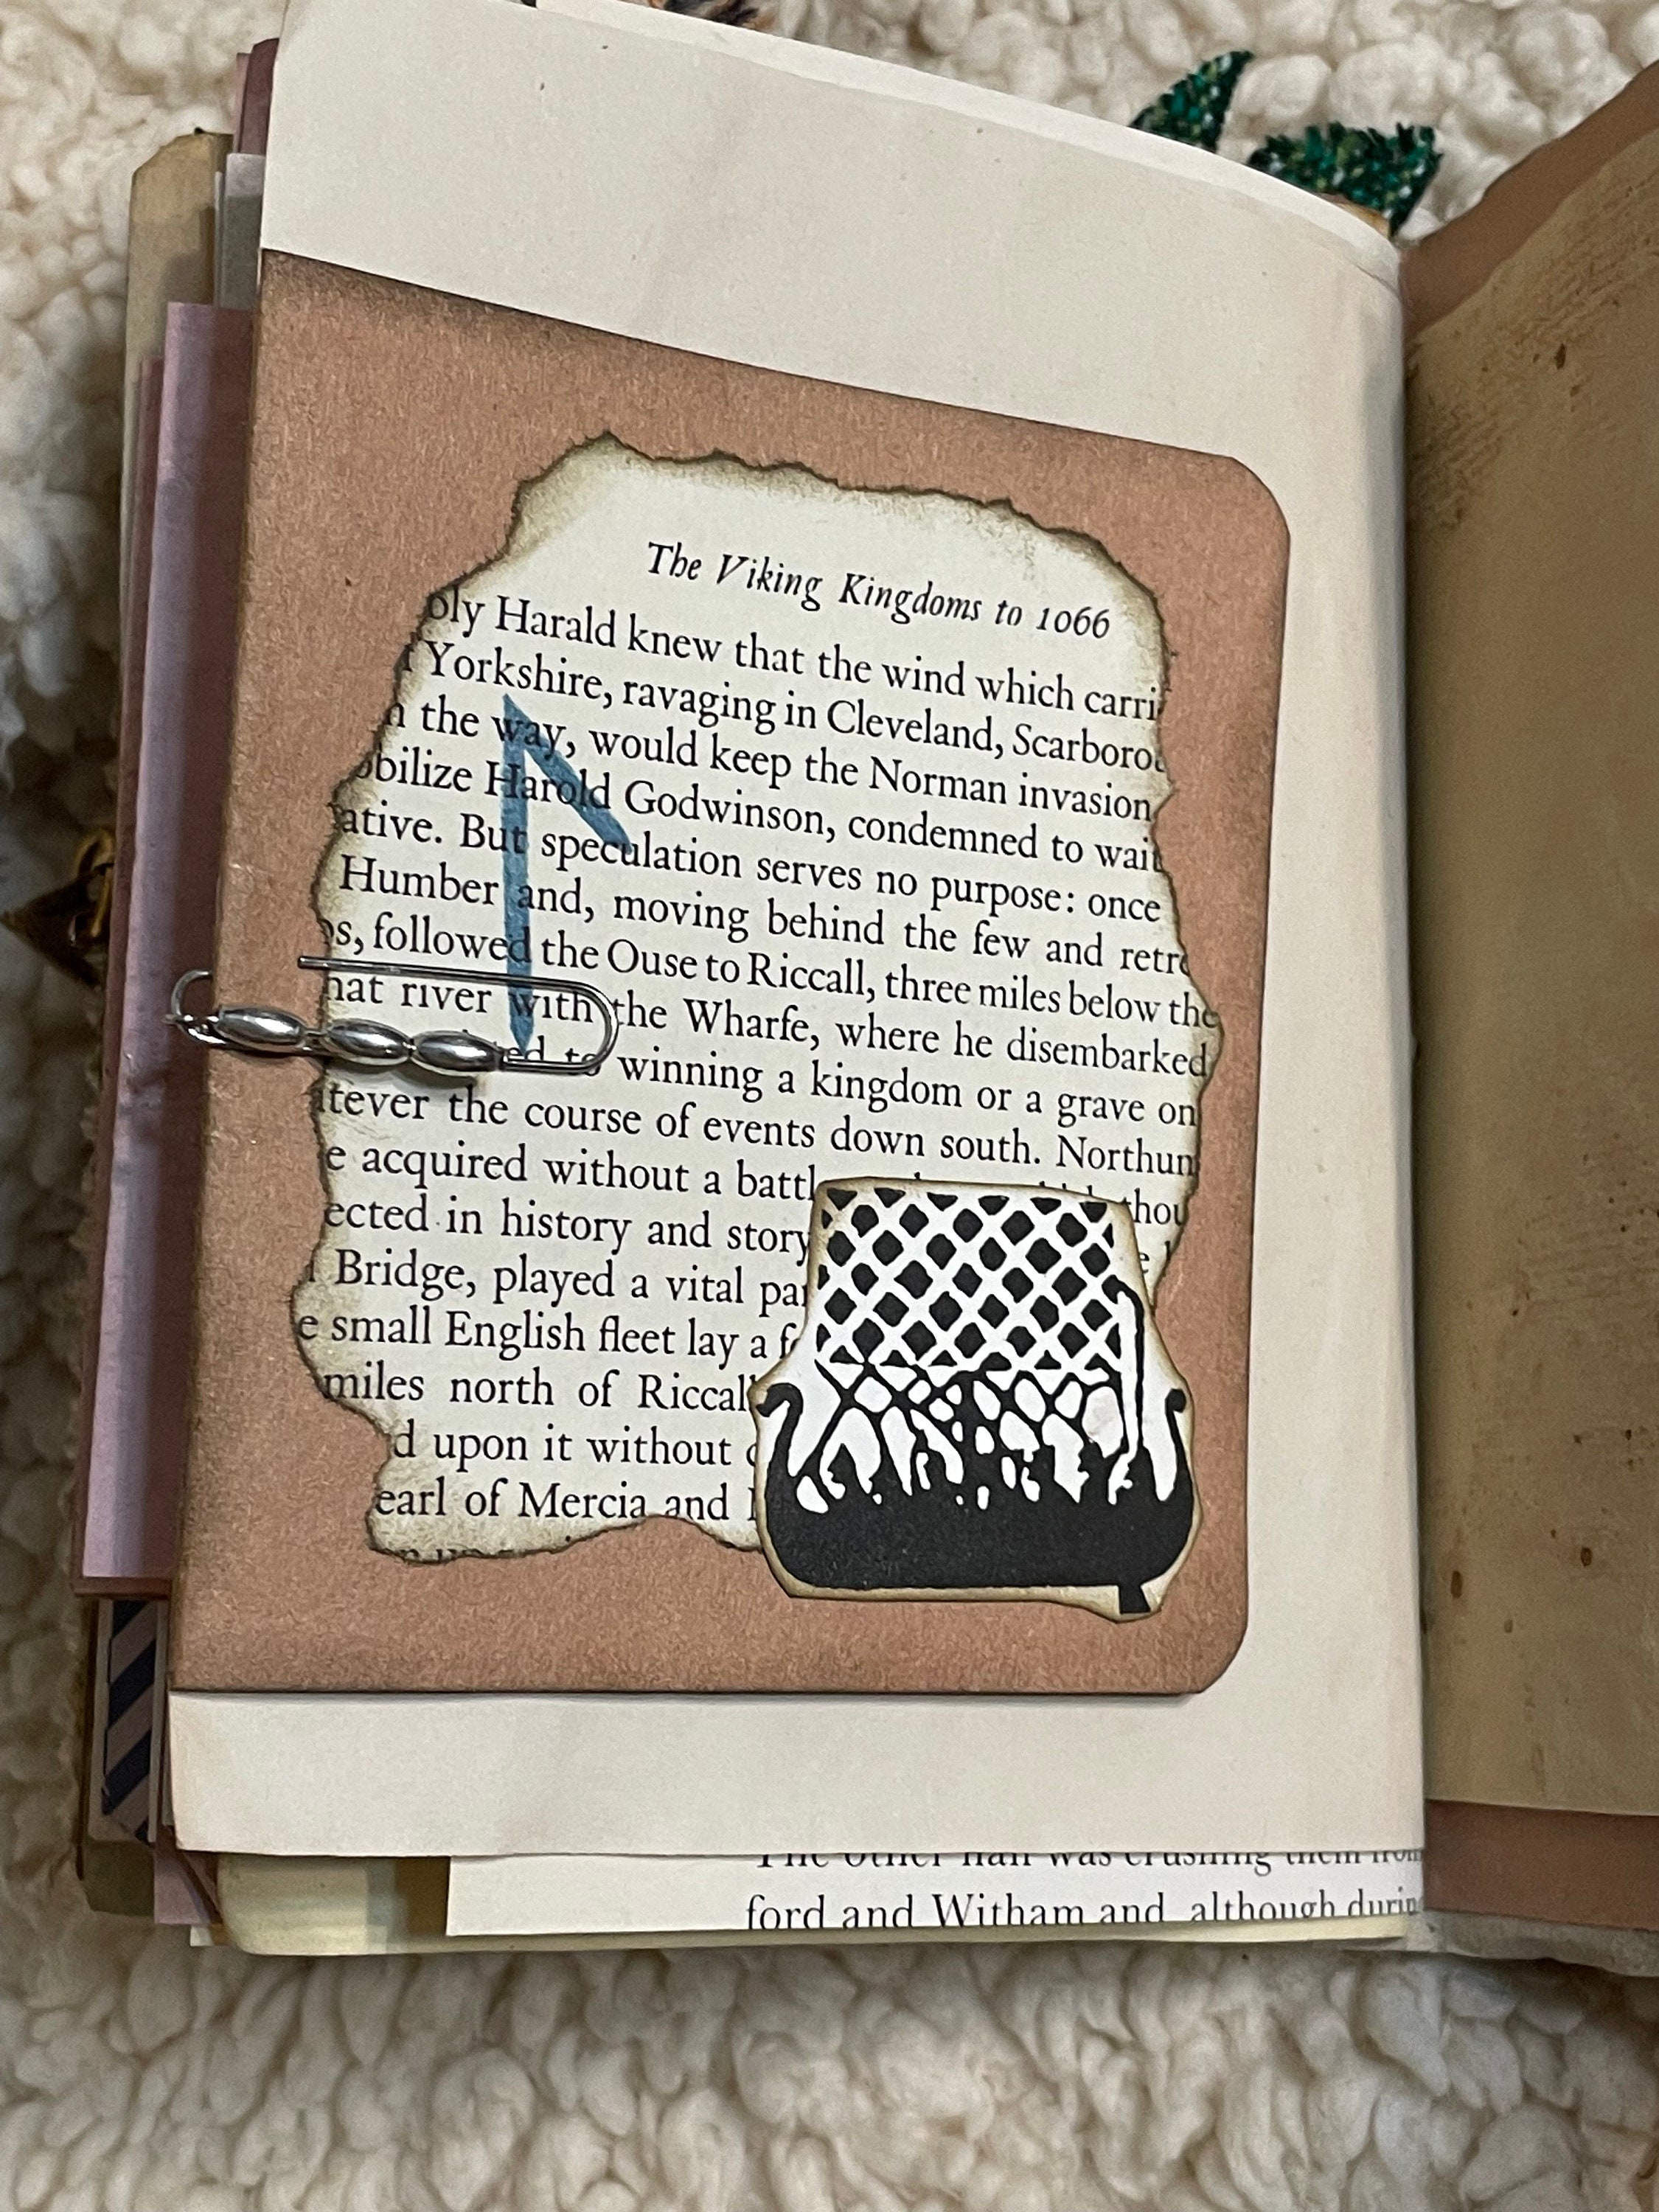 The Viking Kingdoms to 1066
oly Harald knew that the wind which carri
f Yorkshire, ravaging in Cleveland, Scarboro
n the way, would keep the Norman invasion
obilize Harold Godwinson, condemned to wait
ative. But speculation serves no purpose: once
Humber and, moving behind the few and retr
os, followed the Ouse to Riccall, three miles below the
hat river with the Wharfe, where he disembarked
ted to winning a kingdom or a grave on
tever the course of events down south. Northum
e acquired without a battl thou
ected in history and story
Bridge, played a vital par
e small English fleet lay a f
miles north of Riccall
d upon it without
earl of Mercia and
The other half was crushing them from
ford and Witham and although durin